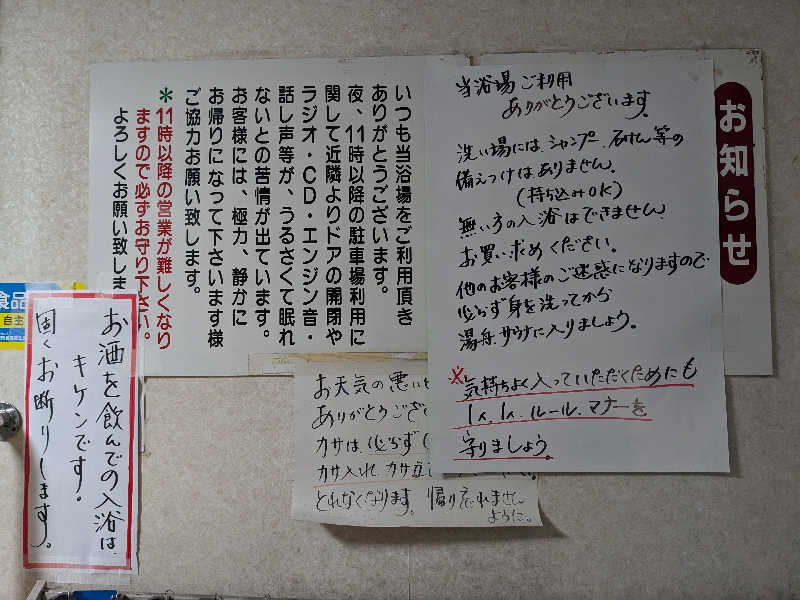 お知らせ
いつも当浴場をご利用頂き
ありがとうございます。
夜、11時以降の駐車場利用に
関して近隣よりドアの開閉や
ラジオ・CD・エンジン音・
話し声等が、うるさくて眠れ
ないとの苦情が出ています。
お客様には、極力、静かに
お帰りになって下さいます様
ご協力お願い致します。
＊11時以降の営業が難しくなり
ますので必ずお守り下さい。
よろしくお願い致しま
当浴場ご利用
ありがとうございます。
洗い場には、シャンプー、石けん等の
備えつけはありません。
(持ち込みOK)
無い方の入浴はできません
お買い求めください。
他のお客様のご迷惑になりますので
必らず身を洗ってから
湯舟、サウナに入りましょう。
※気持ちよく入っていただくためにも
1人、1人、ルール、マナーを
守りましょう。
お天気の悪い
ありがとうござ
カサは、必らず
カサ入れ、カサ立
とれなくなります。帰り忘れません
ように。
お酒を飲んでの入浴は、
キケンです！
固くお断りします。
食品
自主